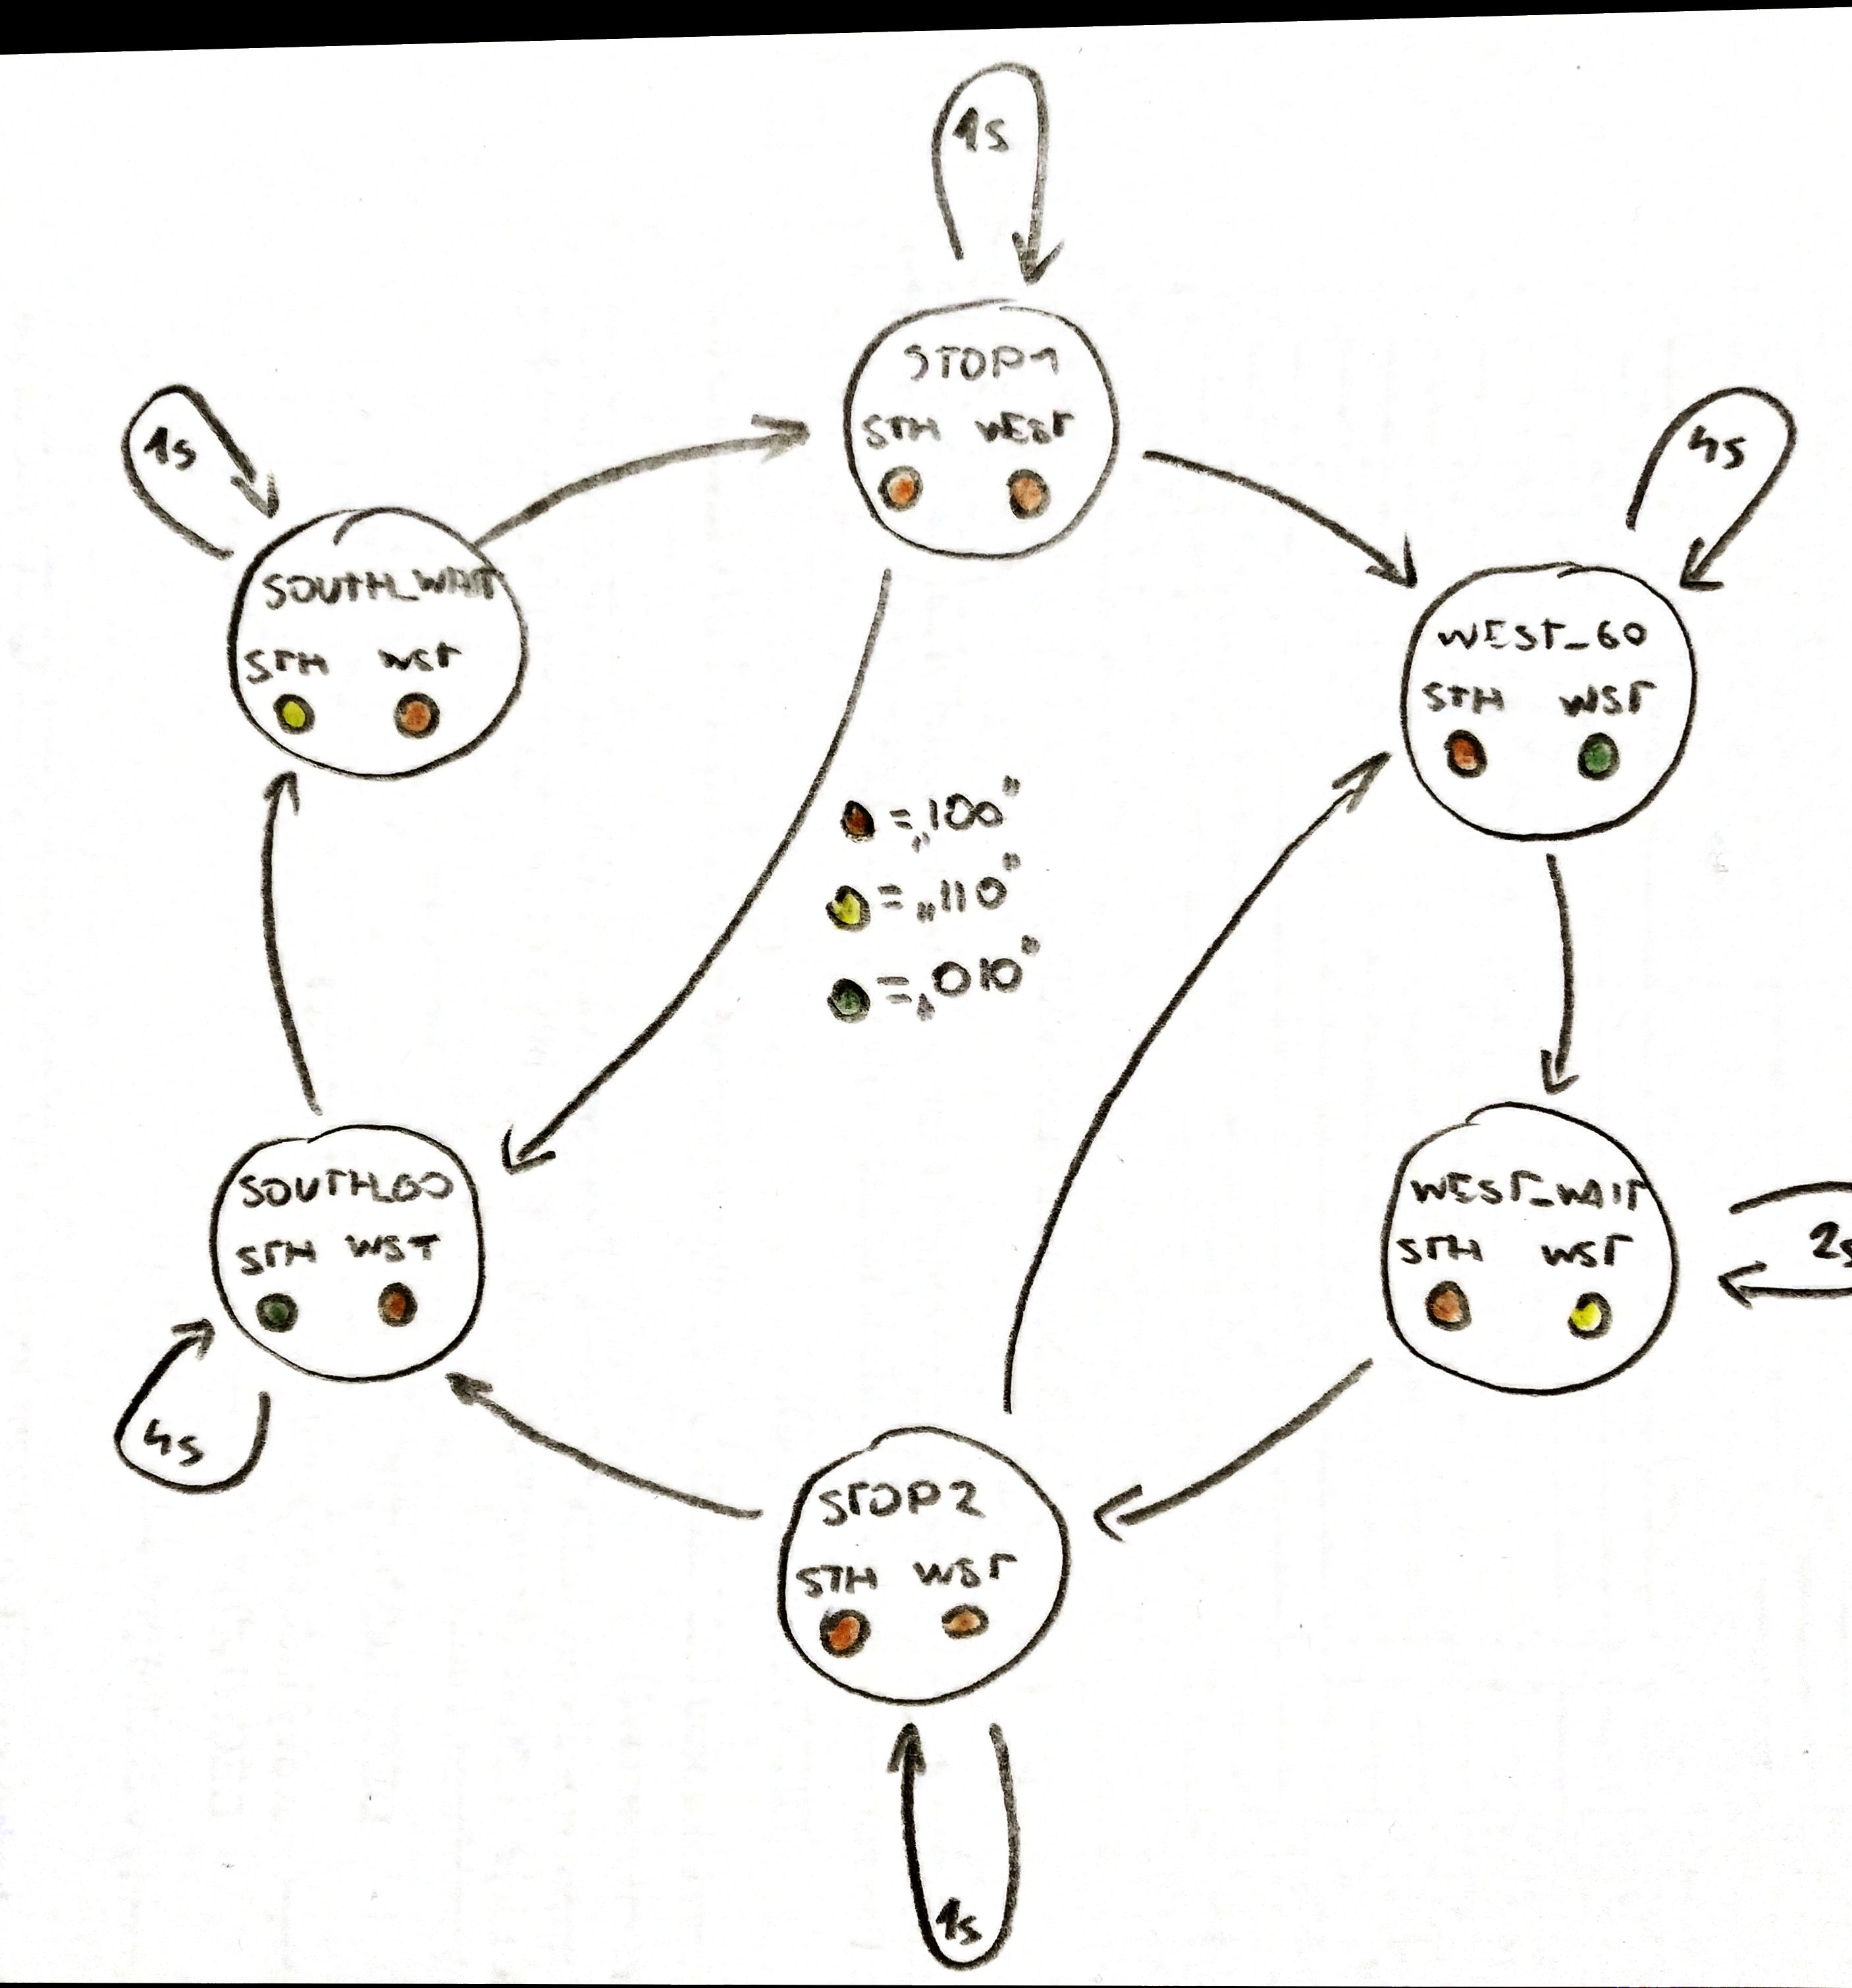 1s
STOP1
STH WEST
1s
4s
SOUTH_WAIT
STH WST
WEST_GO
STH WST
= „100"
= „110"
= „010"
SOUTH_GO
STH WST
4s
WEST_WAIT
STH WST
2s
STOP2
STH WST
1s